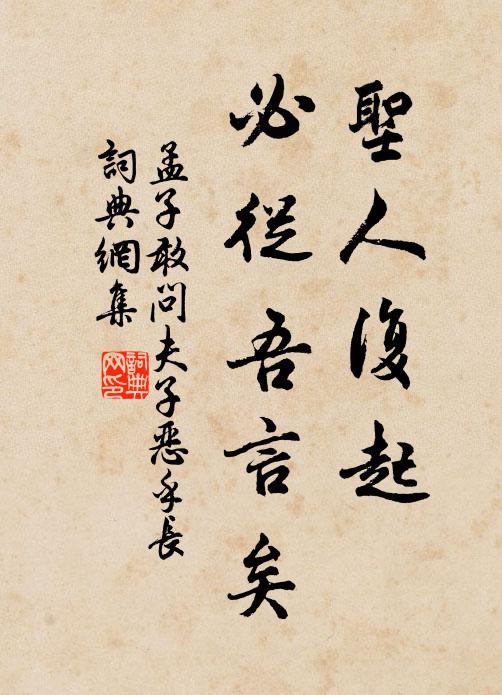 聖人復起
必從吾言矣
孟子敢問夫子惡乎長
詞典網集
詞典
网印